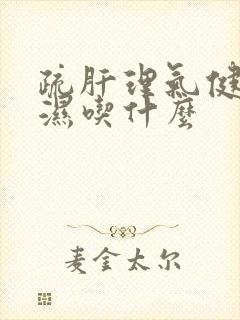 疏肝理氣健
濕喫什麼
麦金太尔